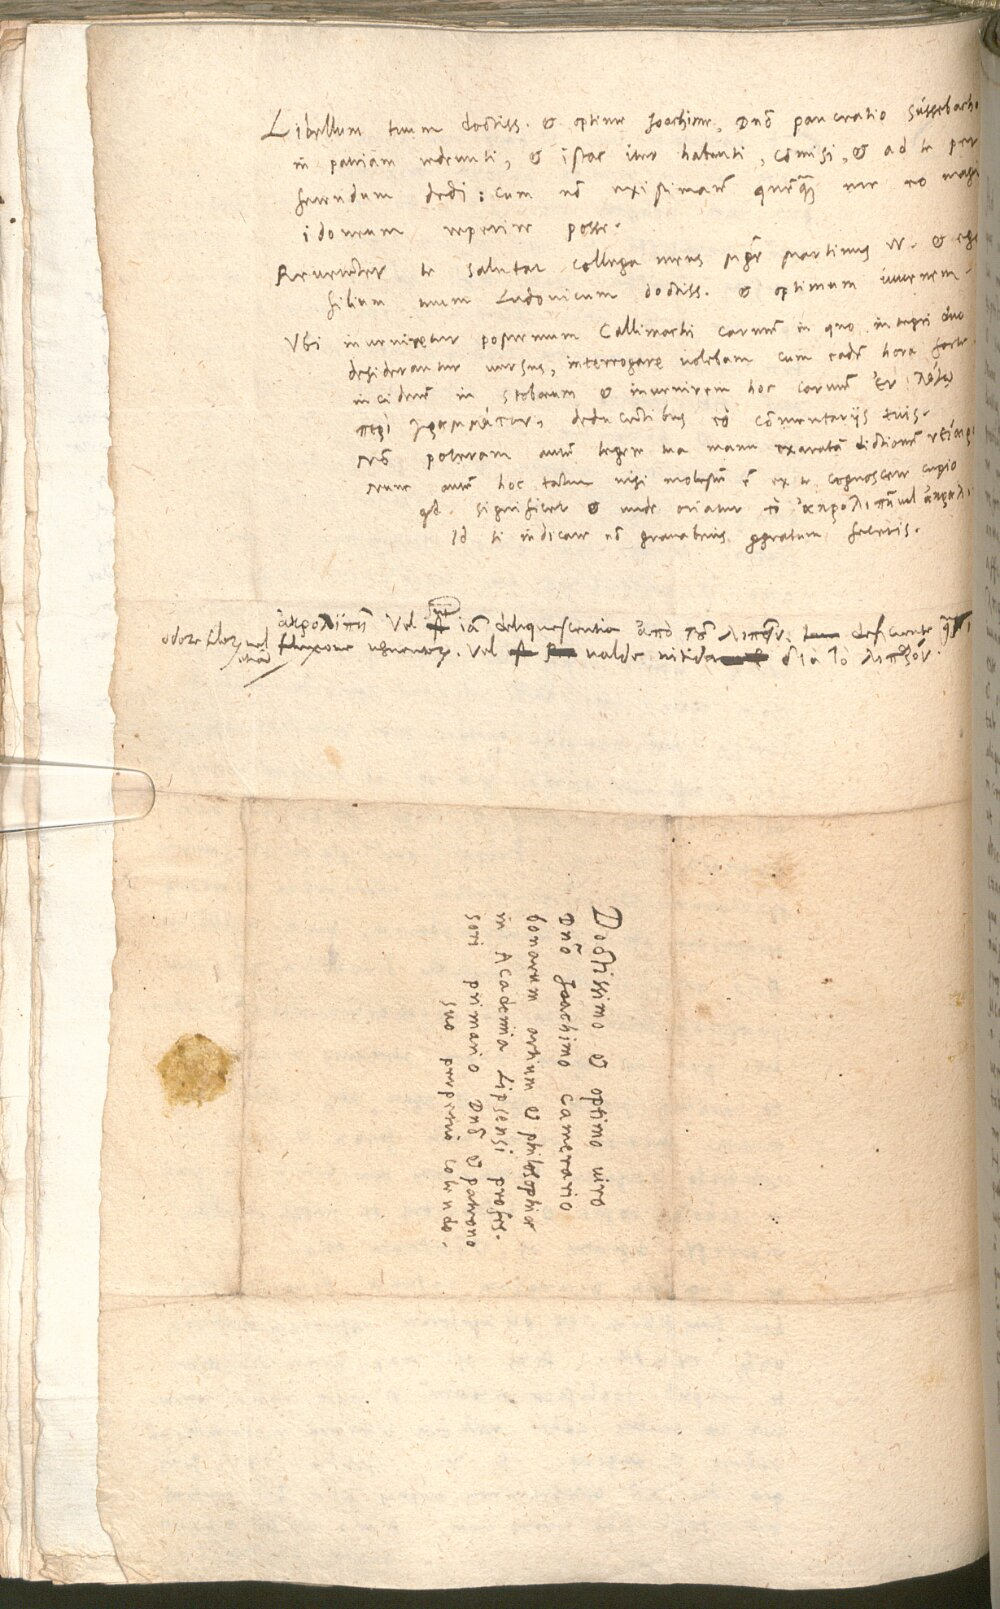 Libellum tuum doctiss. & optime Joachime, Dnō pancratio Süssebacho
in patriam redeunti, & istac iter habenti, cōmisi, & ad te per
ferendum dedi: cum nō existimarē quenquā me eo magis
idoneum reperire posse.
Reverenter te salutat collega meus Mgr̄ Martinus W. & ego
filium tuum Ludovicum doctiss. & optimum iuvenem.
Ubi inveniretur postremum Callimachi carmen in quo integri duo
desiderantur versus, interrogare volebam cum eadē hora forte
inciderē in Stobæum & invenirem hoc carmen ἐν λόγῳ
περὶ γραμμάτων, deducentibus eò cōmentariis tuis.
Nō poteram autem legere tua manu exaratā dictionem
Nunc autem hoc tantum nisi molestū ē ex te cognoscere cupio
qd. significet & unde oriatur τὸ ἀκρολιπῆ vel
Id si indicare nō gravaberis pergratum feceris.
ἀκρολιπῆ vel iā deliquescentia ἀπὸ τοῦ defluente
odore vel unguentorū. Vel valde nitida διὰ τὸ λιπαρόν.
etiā
Doctissimo & optimo viro
Dnō Joachimo Camerario
bonarum artium & philosophiæ
in Academia Lipsensi profes-
sori primario Dnō & patrono
suo perpetuò colendo.